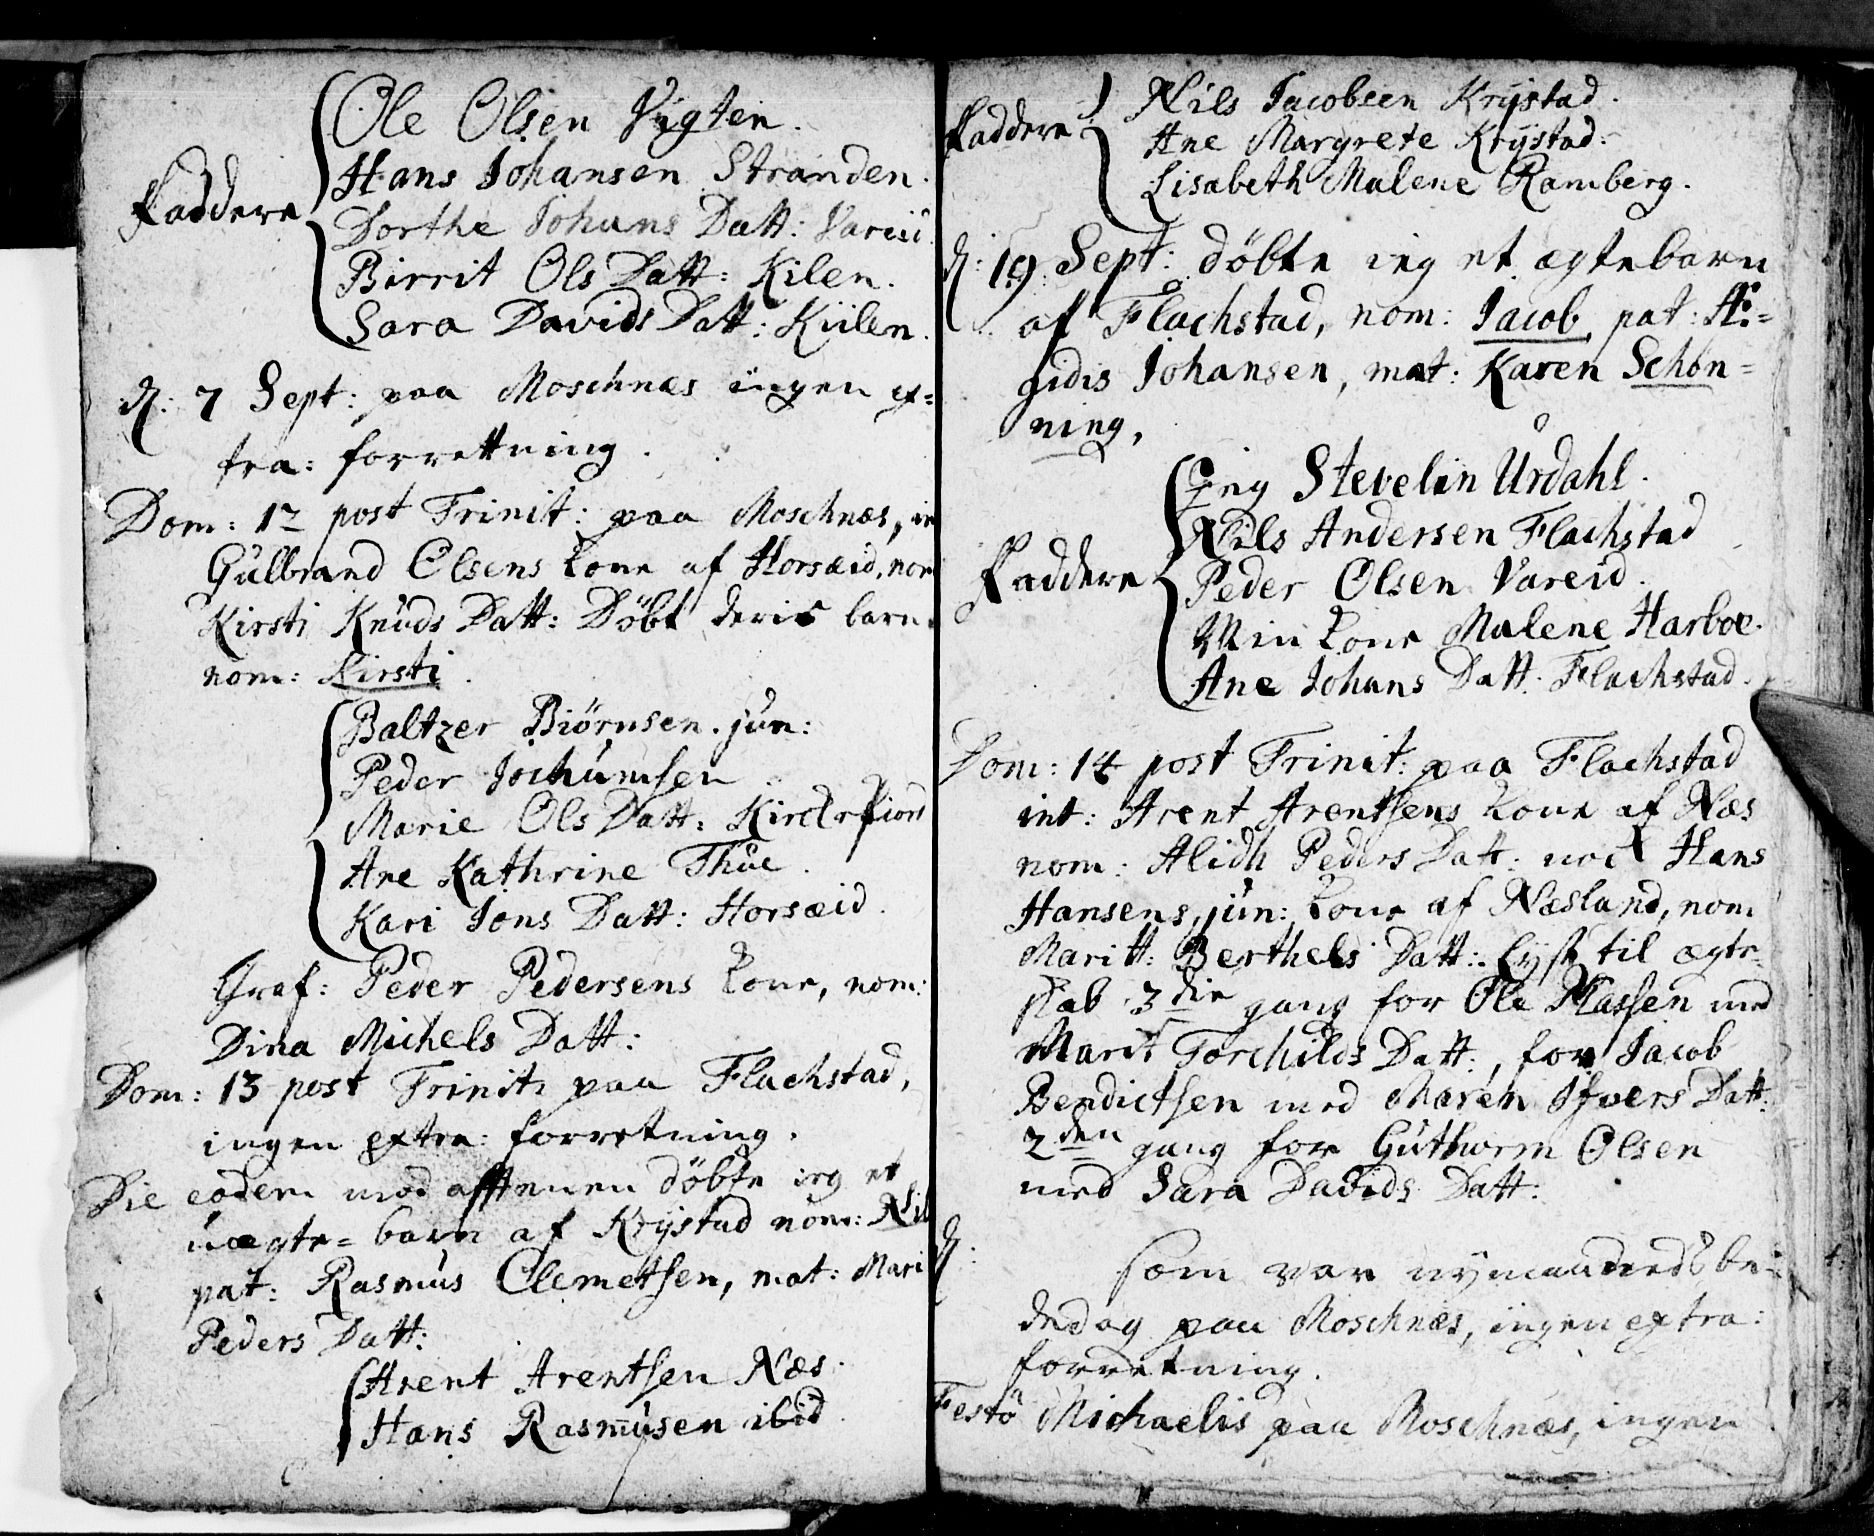 Ole Olsen Vigten.
Hans Johansen Stranden.
Faddere
Dorthe Johans Datt: Vareid.
Birrit Ols Datt: Kilen.
Sara Davids Datt: Kiilen.
d: 7 Sept: paa Moschnæs ingen ex=
tra: forrettning.
Dom: 12 post Trinit: paa Moschnæs, in
Gulbrand Olsens kone af Horsæid, nom
Kirsti Knuds Datt: Döbt deris barn
nom: Kirsti.
Baltzer Biörnsen. jun:
Peder Jochumsen
Marie Ols Datt: Kirckefiord
Ane Kathrine Thue.
Kari Jons Datt: Horsæid.
Graf: Peder Pedersens kone, nom:
Dina Michels Datt:
Dom: 13 post Trinit: paa Flachstad,
ingen extra: forretning.
Die eodem mod afftenen döbte ieg et
uægte=barn af Krystad nom: Nil
pat: Rasmus Clemetsen, mat: Mari
Peders Datt:
Arent Arentsen Næs.
Hans Rasmusen ibid.
Nils Jacobsen Krystad.
Faddere
Ane Margrete Krystad.
Lisabeth Malene Ramberg.
d: 19 Sept: döbte ieg et ægtebarn
af Flachstad, nom: Jacob, pat: Æ=
gidis Johansen, mat: Karen Schön=
ning,
Jeg Stevelin Urdahl.
Nils Andersen Flachstad
Faddere
Peder Olsen Vareid.
Min kone Malene Harboe.
Ane Johans Datt. Flachstad.
Dom: 14 post Trinit: paa Flachstad
int: Arent Arentsens kone af Næs
nom: Alidh Peders Datt: nock Hans
Hansens, jun: kone af Næsland, nom
Maritt: Berthels Datt: lyst til ægte
skab 3die gang for Ole Klassen med
Marit Torchilds Datt:, for Jacob
Bendictsen med Maren Ifvers Datt:
2den gang for Guthorm Olsen
med Sara Davids Datt:
d:
som var nymaaneds be=
dedag paa Moschnæs, ingen extra:
forretning.
Festo Michaelis paa Moschnæs, ingen